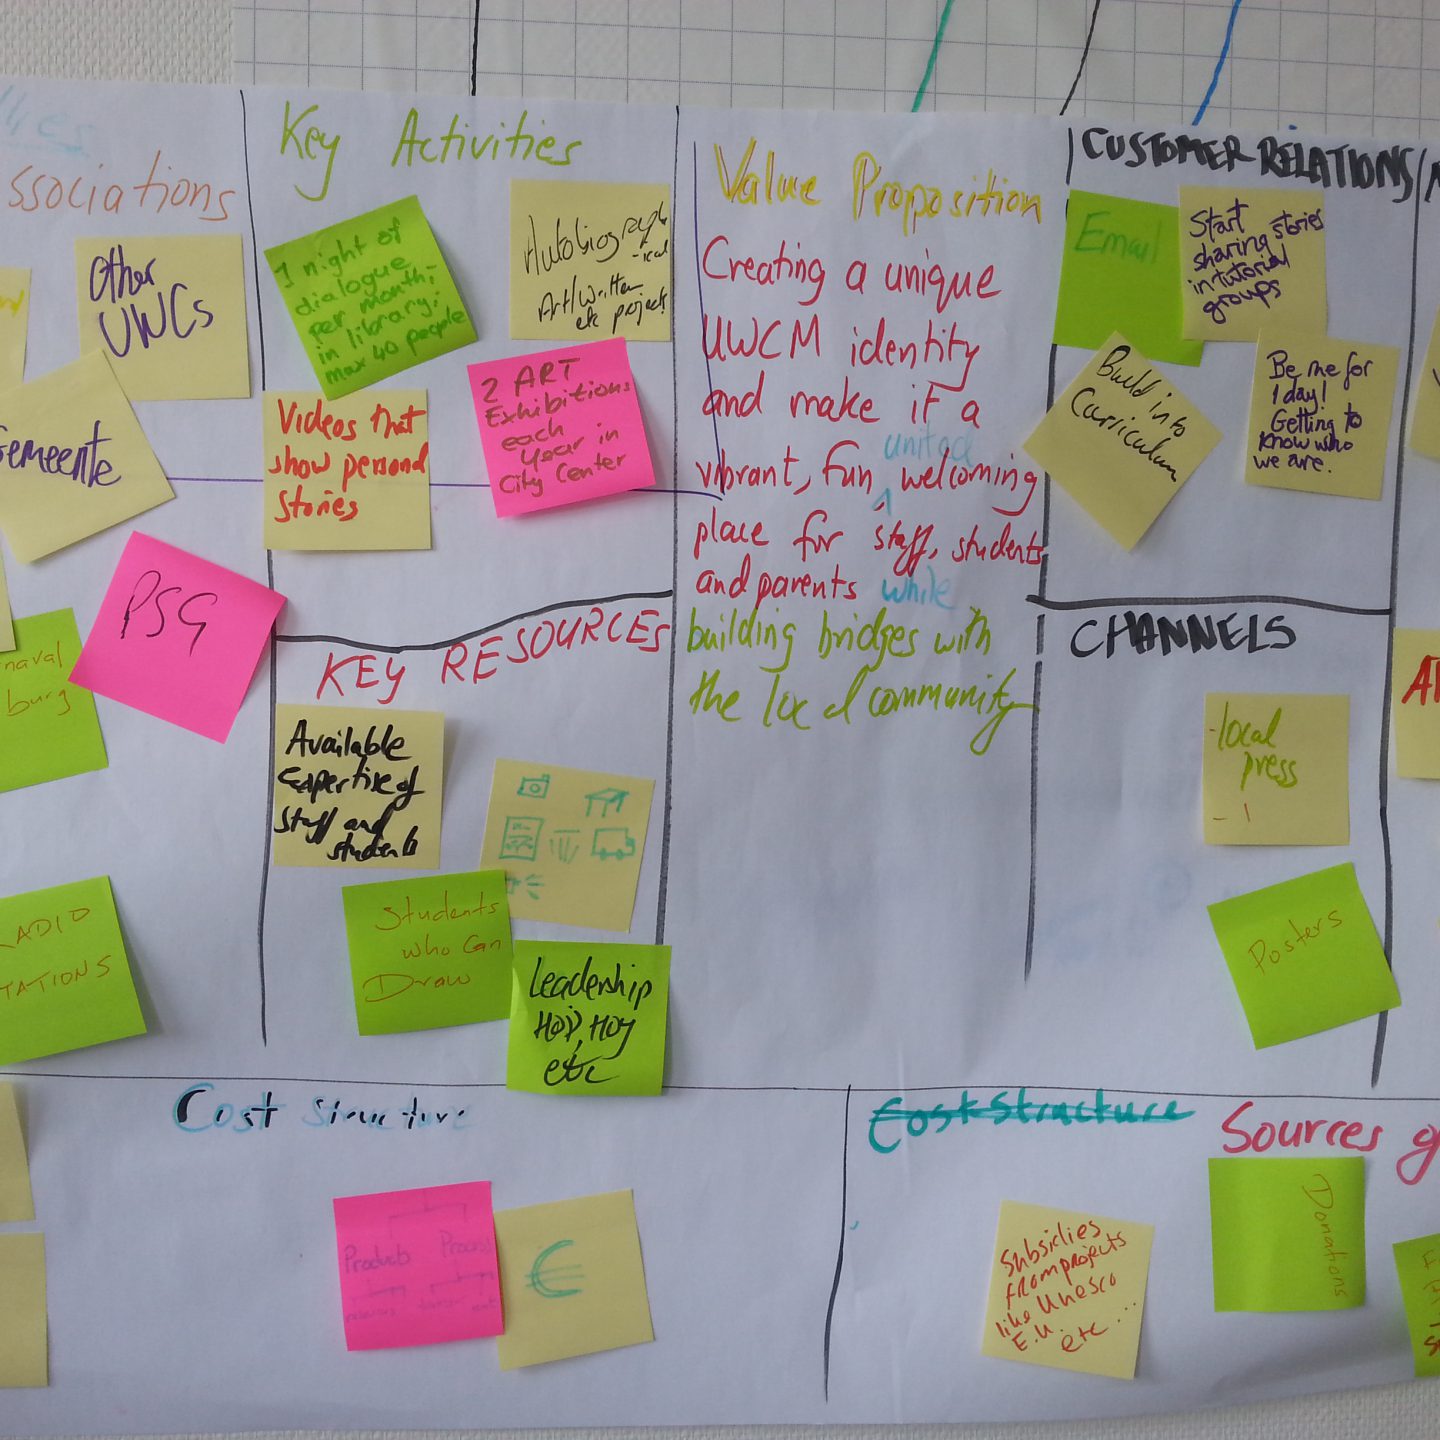 ssociations
Other
UWCs
Gemeente
PSG
naval
burg
RADIO
TATIONS
Key Activities
1 night of
dialogue
per month;
in library;
max 40 people
Autobiograph
-ical
Art/written
etc projects
Videos that
show personal
stories
2 ART
Exhibitions
each
year in
City Center
KEY RESOURCES
Available
expertise of
staff and
students
Students
who Can
Draw
Leadership
HOD, HOY
etc
Value Proposition
Creating a unique
UWCM identity
and make it a
united
vibrant, fun, welcoming
place for staff, students
and parents while
building bridges with
the local community
CUSTOMER RELATIONS
Email
Start
sharing stories
in tutorial
groups
Build into
Curriculum
Be me for
1 day!
Getting to
know who
we are.
CHANNELS
- local
press
-
Posters
Cost Structure
Products Process
€
Cost Structure
Sources of
Subsidies
from projects
like Unesco
E.U. etc...
Donations